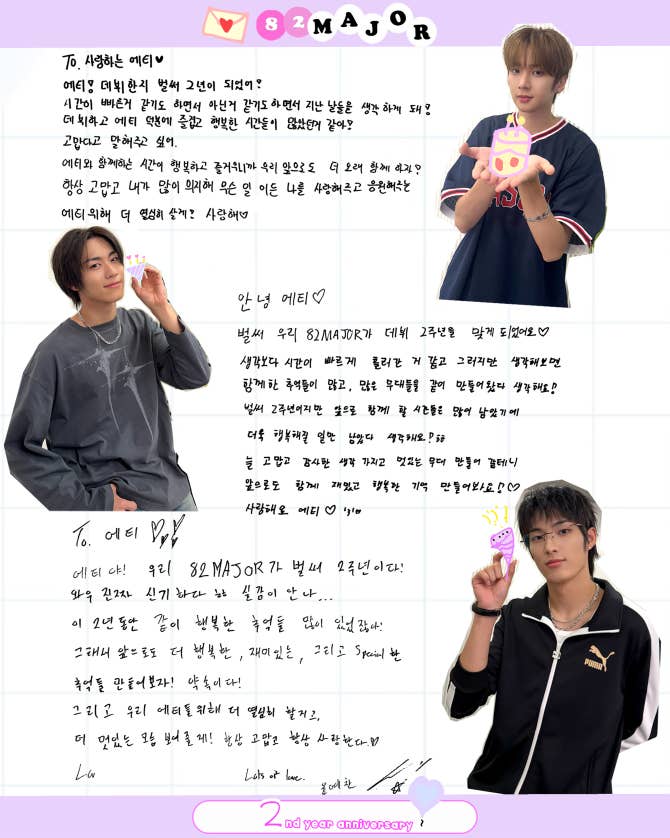 82MAJOR
To. 사랑하는 에티♥
에티! 데뷔한지 벌써 2년이 되었어?
시간이 빠른거 같기도 하면서 아닌거 같기도 하면서 지난 날들을 생각 하게 돼!
데뷔하고 에티 덕분에 즐겁고 행복한 시간들이 많았던거 같아?
고맙다고 말해주고 싶어.
에티와 함께하는 시간이 행복하고 즐거우니까 우리 앞으로도 더 오래 함께 하자?
항상 고맙고 내가 많이 의지해 무슨 일 이든 나를 사랑해주고 응원해주는
에티위해 더 열심히 살게? 사랑해♡
안녕 에티♡
벌써 우리 82MAJOR가 데뷔 2주년을 맞게 되었어요♡
생각보다 시간이 빠르게 흘러간 거 같고 그러지만 생각해보면
함께한 추억들이 많고, 많은 무대들을 같이 만들어왔다 생각해요!
벌써 2주년이지만 앞으로 함께 할 시간들은 많이 남았기에
더욱 행복해질 일만 남았다 생각해요?ㅎㅎ
늘 고맙고 감사한 생각 가지고 멋있는 무대 만들어 갈테니
앞으로도 함께 재밌고 행복한 기억 만들어봐요!♡
사랑해요 에티♡
ASO
To. 에티
에티야! 우리 82MAJOR가 벌써 2주년이다!
와우 진짜 신기하다 ㅎㅎ 실감이 안 나...
이 2년동안 같이 행복한 추억들 많이 있었잖아!
그래서 앞으로도 더 행복한, 재미있는, 그리고 Special한
추억들 만들어보자! 약속이다!
그리고 우리 에티를 위해 더 열심히 할거고,
더 멋있는 모습 보여줄게! 항상 고맙고 항상 사랑한다.♡
Luv Lots of love. 윤예찬
PUMA
2nd year anniversary